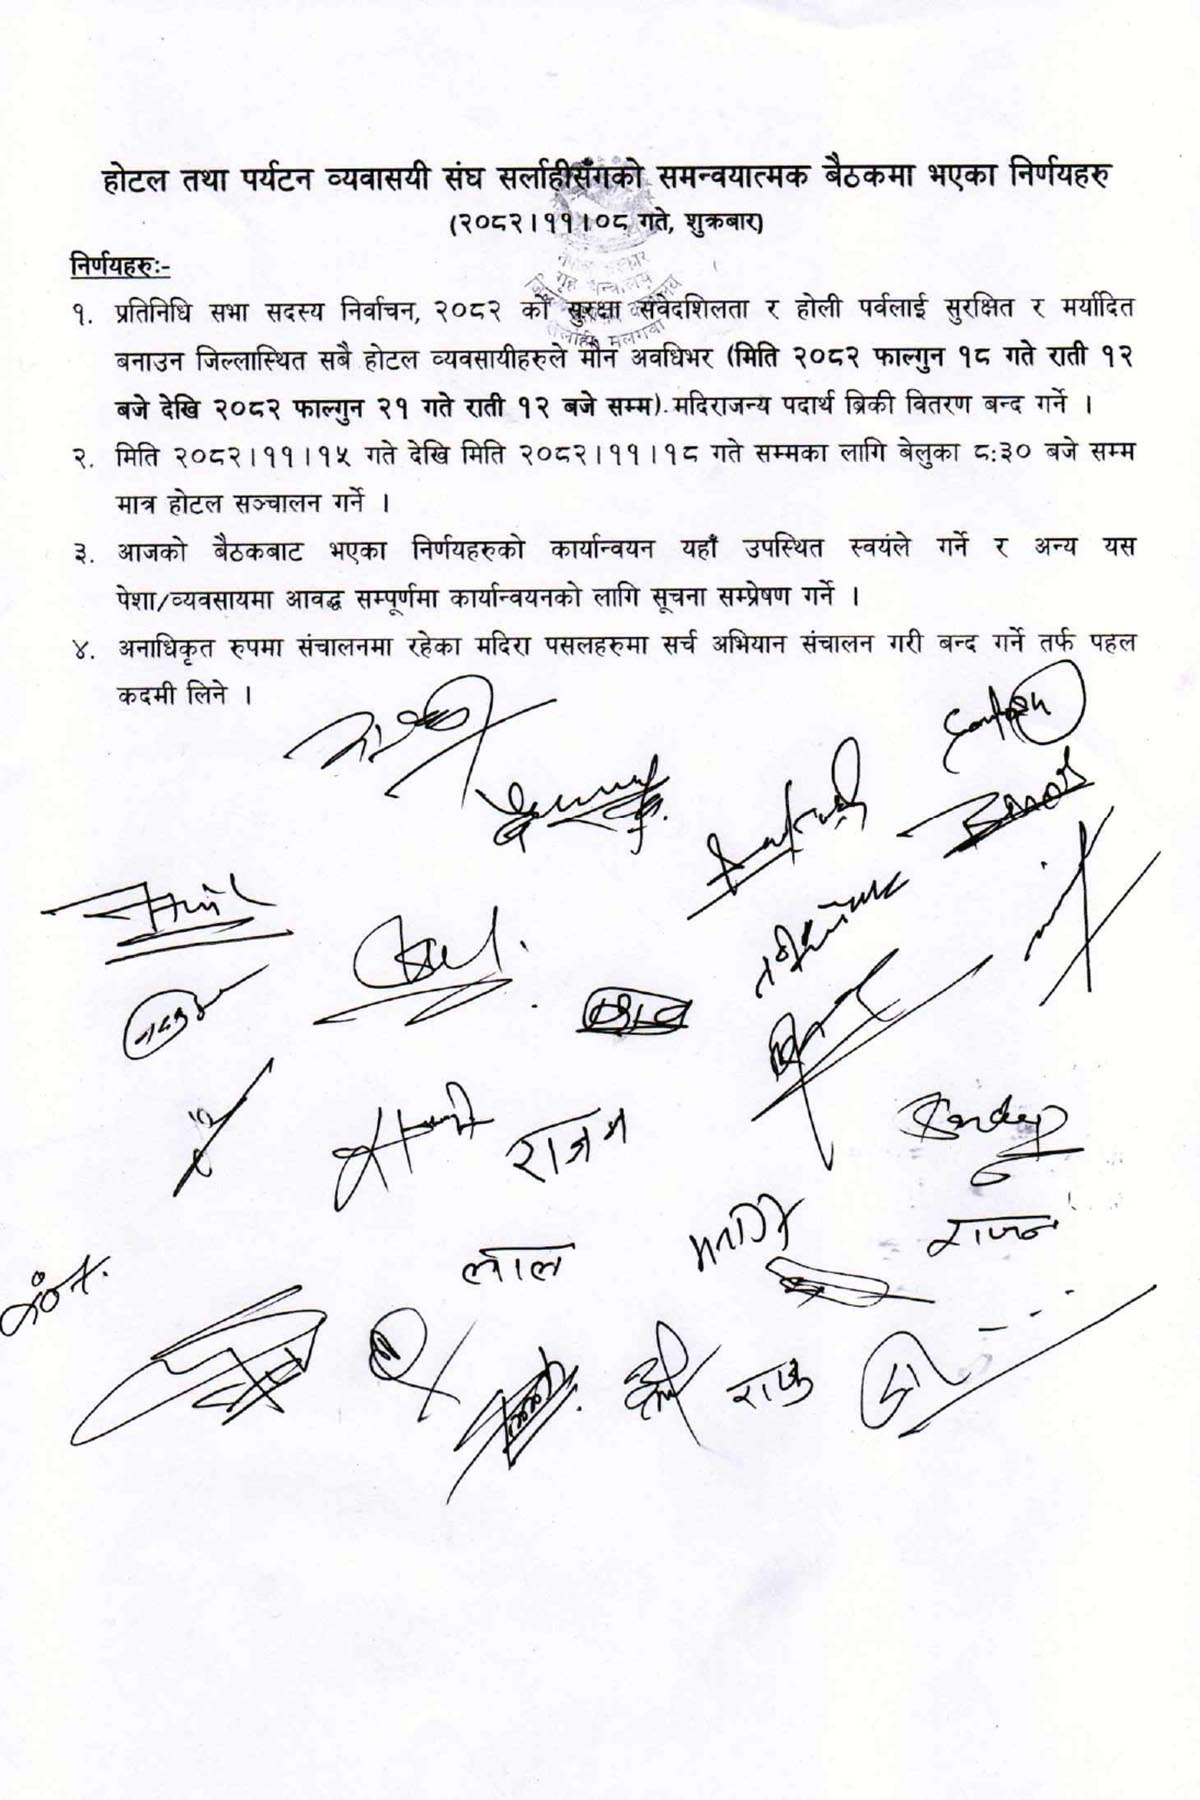 होटल तथा पर्यटन व्यवासयी संघ सर्लाहीसँगको समन्वयात्मक बैठकमा भएका निर्णयहरु
(२०८२।११।०८ गते, शुक्रबार)
निर्णयहरुः-
१. प्रतिनिधि सभा सदस्य निर्वाचन, २०८२ को सुरक्षा संवेदशिलता र होली पर्वलाई सुरक्षित र मर्यादित
बनाउन जिल्लास्थित सबै होटल व्यवसायीहरुले मौन अवधिभर (मिति २०८२ फाल्गुन १८ गते राती १२
बजे देखि २०८२ फाल्गुन २१ गते राती १२ बजे सम्म) मदिराजन्य पदार्थ ब्रिकी वितरण बन्द गर्ने ।
२. मिति २०८२।११।१५ गते देखि मिति २०८२।११।१८ गते सम्मका लागि बेलुका ८:३० बजे सम्म
मात्र होटल सञ्चालन गर्ने ।
३. आजको बैठकबाट भएका निर्णयहरुको कार्यान्वयन यहाँ उपस्थित स्वयंले गर्ने र अन्य यस
पेशा/व्यवसायमा आवद्ध सम्पूर्णमा कार्यान्वयनको लागि सूचना सम्प्रेषण गर्ने ।
४. अनाधिकृत रुपमा संचालनमा रहेका मदिरा पसलहरुमा सर्च अभियान संचालन गरी बन्द गर्ने तर्फ पहल
कदमी लिने ।
राजन
लाल
राजन
राजु